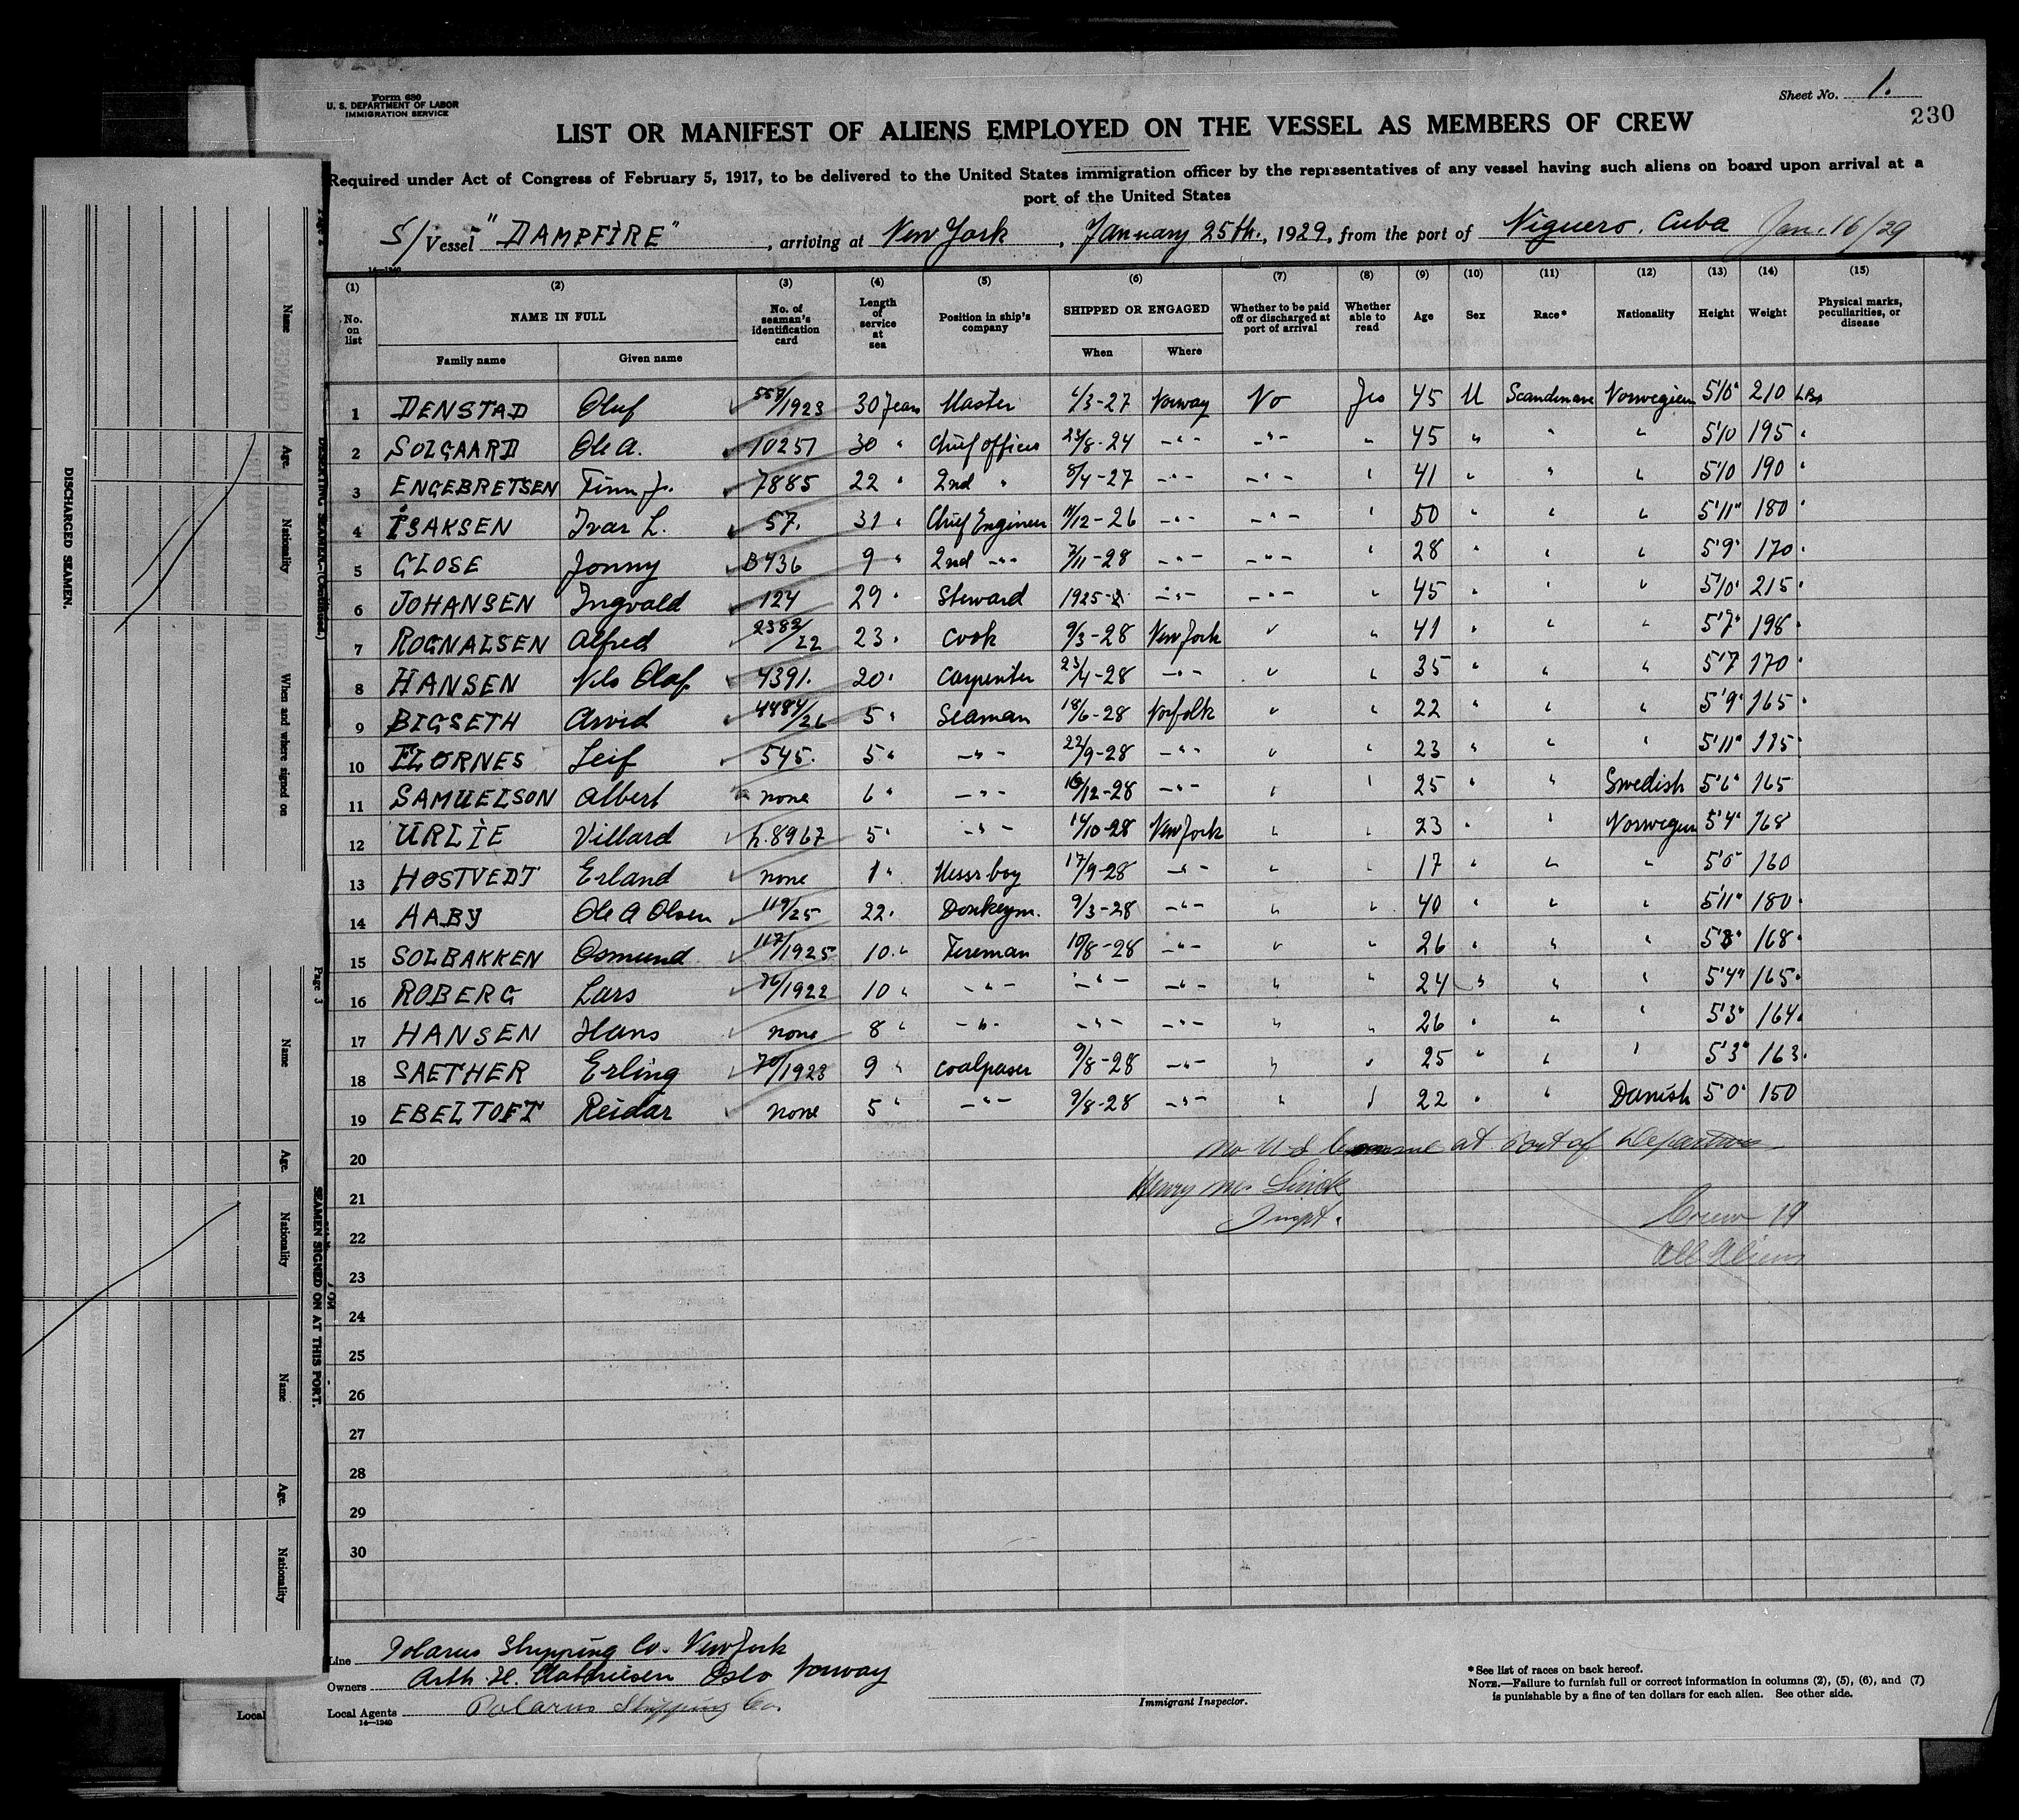 Form 680
U. S. DEPARTMENT OF LABOR
IMMIGRATION SERVICE
Sheet No. 1.
230
LIST OR MANIFEST OF ALIENS EMPLOYED ON THE VESSEL AS MEMBERS OF CREW
Required under Act of Congress of February 5, 1917, to be delivered to the United States immigration officer by the representatives of any vessel having such aliens on board upon arrival at a
port of the United States
S/Vessel "DAMPFIRE", arriving at New York, January 25th., 1929, from the port of Niguero. Cuba Jan. 16/29
14—1240
(1) (2) (3) (4) (5) (6) (7) (8) (9) (10) (11) (12) (13) (14) (15)
No. on list NAME IN FULL Family name Given name No. of seaman's identification card Length of service at sea Position in ship's company SHIPPED OR ENGAGED When Where Whether to be paid off or discharged at port of arrival Whether able to read Age Sex Race* Nationality Height Weight Physical marks, peculiarities, or disease
1 DENSTAD Oluf 557/1923 30 Years Master 4/3-27 Norway No Yes 45 M Scandinave Norwegien 5'10" 210 LBs
2 SOLGAARD Ole A. 10251 30 " Chief officer 23/8-24 -"- -"- " 45 " " " 5'10 195 "
3 ENGEBRETSEN Finn J. 7885 22 " 2nd " 8/4-27 -"- -"- " 41 " " " 5'10 190 "
4 ISAKSEN Ivar L. 57. 31 " Chief Engineer 11/12-26 -"- -"- " 50 " " " 5'11" 180 "
5 GLOSE Jonny B436 9 " 2nd -"- 7/11-28 -"- -"- " 28 " " " 5'9" 170 "
6 JOHANSEN Ingvald 124 29 " Steward 1925 -"- -"- " 45 " " " 5'10" 215 "
7 ROGNALSEN Alfred 2382/22 23 " Cook 9/3-28 New York " " 41 " " " 5'7" 198 "
8 HANSEN Nils Olaf 4391. 20 " Carpenter 23/4-28 -"- " " 35 " " " 5'7 170 "
9 BIGSETH Arvid 4484/26 5 " Seaman 18/6-28 Norfolk " " 22 " " " 5'9" 165 "
10 FLORNES Leif 545. 5 " -"- 22/9-28 -"- " " 23 " " " 5'11"
11 SAMUELSON Albert none 6 " -"- 16/12-28 -"- " " 25 " " Swedish 5'6" 165
12 URLIE Villard h.8967 5 " -"- 14/10-28 New York " " 23 " " Norwegien 5'4" 168
13 HOSTVEDT Erland none 1 " Messr boy 17/9-28 -"- " " 17 " " " 5'0" 160
14 AABY Ole A Olsen 119/25 22 " Donkeym. 9/3-28 -"- " " 40 " " " 5'11" 180 "
15 SOLBAKKEN Osmund 117/1925 10 " Fireman 10/8-28 -"- " " 26 " " " 5'3" 168 "
16 ROBERG Lars 76/1922 10 " -"- -"- -"- " " 24 " " " 5'4" 165 "
17 HANSEN Hans none 8 " -"- -"- -"- " " 26 " " " 5'3" 164 "
18 SAETHER Erling 70/1923 9 " Coalpaser 9/8-28 -"- " " 25 " " " 5'3" 163 "
19 EBELTOFT Reidar none 5 " -"- 9/8-28 -"- " " 22 " " Danish 5'0" 150
20 No U S at Port of Departure
21 Henry
22 Inspt. Crew 19
23 All Aliens
24
25
26
27
28
29
30
Line Polarus Shipping Co. New York
Owners Arth. H. Mathiesen Oslo Norway
Local Agents Polarus Shipping Co.
14—1240
Immigrant Inspector.
*See list of races on back hereof.
NOTE.—Failure to furnish full or correct information in columns (2), (5), (6), and (7)
is punishable by a fine of ten dollars for each alien. See other side.
DISCHARGED SEAMEN.
Name
Age.
Nationality
When and where signed on
Page 3
SEAMEN SIGNED ON AT THIS PORT.
Name
Age.
Nationality
Name
Age.
Nationality
Local